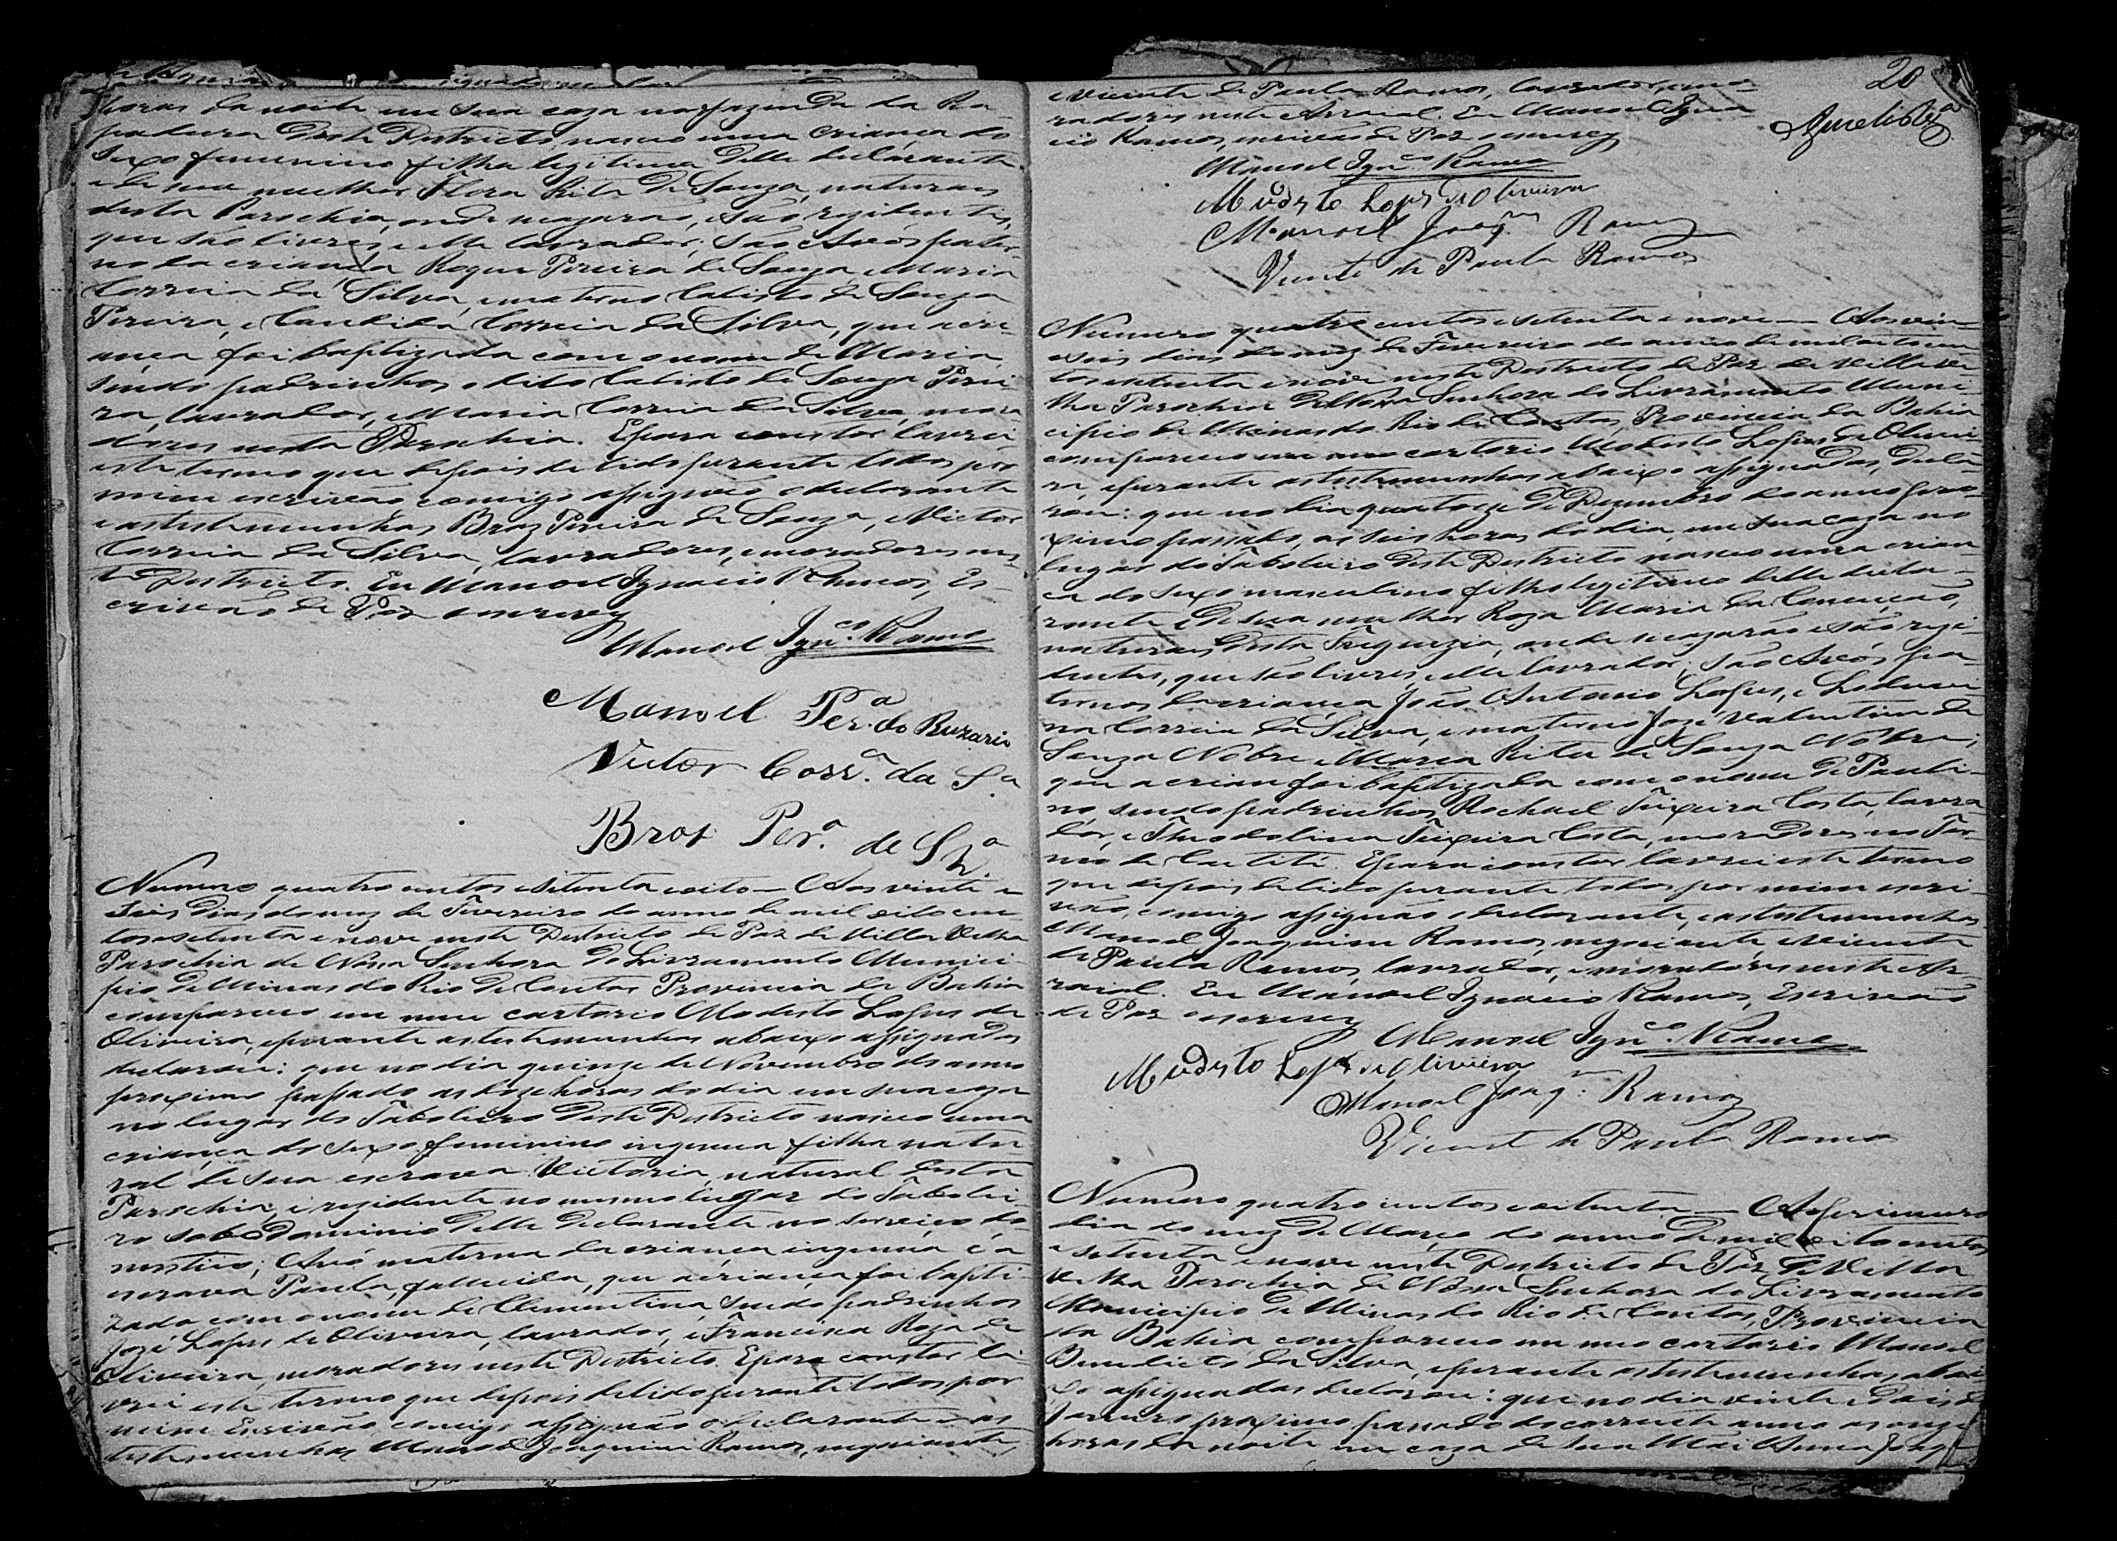 horas da noite em sua caza na fazenda da Ra-
padura deste Districto nasceu uma criança do
sexo feminino filha legitima delle declarante
e de sua mulher Flora Rita de Souza, naturaes
desta Parochia, onde se cazarão, e são rezidentes,
que são livres, e elle lavrador; são Avós pater-
no da criança Roque Pereira de Souza, e Maria
Correia da Silva, e materno Calisto de Souza
Pereira, e Candida Correia da Silva, que a cri-
ança foi baptizada com o nome de Maria
sendo padrinhos o dito Calisto de Souza Perei
ra, lavrador, e Maria Correia da Silva, mora
dores nesta Parochia. E para constar lavrei
este termo que depois de lido perante todos por
mim escrivão comigo assignão o declarante
e as testemunhas Braz Pereira de Souza, e Victor
Correia da Silva, lavradores, e moradores nes
te Districto. Eu Manoel Ignacio Ramos, Es-
crivão de Paz o escrevy
Manoel Ign.co Ramos
Manoel Per.a do Ruzario
Victor Corr.a da S.a
Braz Per.a de Sz.a
Numero quatro centos e setenta e oito — Aos vinte e
seis dias do mez de Fevereiro do anno de mil oito cen
tos e setenta e nove neste Districto de Paz de Villa Velha
Parochia de Nossa Senhora do Livramento Munici
pio de Minas do Rio de Contas Provincia da Bahia
compareceo em meu cartorio Modesto Lopes de
Oliveira, e perante as testemunhas abaixo assignadas
declarou: que no dia quinze de Novembro do anno
proximo passado as doze horas do dia em sua caza
no lugar do Taboleiro deste Districto nasceo uma
criança do sexo feminino ingenua filha natu
ral de sua escrava Victoria, natural desta
Parochia, e rezidente no mesmo lugar do Tabolei
ro sob o Dominio delle declarante no serviço do
mestico; Avó materna da criança ingenua é a
escrava Paula, fallecida, que a criança foi bapti-
zada com o nome de Clementina, sendo padrinhos
José Lopes de Oliveira, lavrador, e Francisca Roza de
Oliveira, moradores neste Districto. E para constar la
vrei este termo que depois de lido perante todos por
mim Escrivão comigo assignão o declarante e as
testemunhas Manoel Joaquim Ramos, negociante,
20
e Vicente de Paula Ramos, lavrador, e mo-
radores neste Arraial. Eu Manoel Igna
cio Ramos, escrivão de Paz o escrevy
Manoel Ign.co Ramos
Modesto Lopes de Oliveira
Manoel Joaq.m Ramos
Vicente de Paula Ramos
Numero quatro centos e setenta e nove — Aos vin-
e seis dias do mez de Fevereiro do anno de mil oito cen
tos e setenta e nove neste Districto de Paz de Villa Ve
lha Parochia de Nossa Senhora do Livramento Muni-
cipio de Minas do Rio de Contas, Provincia da Bahia
compareceo em meu cartorio Modesto Lopes de Olivei
ra e perante as testemunhas abaixo assignadas, decla-
rou: que no dia quatorze de Dezembro do anno pro-
ximo passado, as seis horas do dia, em sua caza no
lugar do Taboleiro deste Districto nasceo uma crian-
ça do sexo masculino filho legitimo delle decla-
rante e de sua mulher Roza Maria da Conceição,
naturaes desta Freguezia, onde se cazarão e são rezi-
dentes, que são livres, e elle lavrador; são Avós pa-
ternos da criança João Antonio Lopes, e Loduvi-
na Correia da Silva, e materno José Valentim de
Souza Nobre e Maria Rita de Souza Nobre;
que a crian foi baptizada com o nome de Pauli-
no, sendo padrinhos Rachael Teixeira Costa, lavra-
dor, e Theodolina Teixeira Costa, moradores no Ter-
mo de Caeteté. E para constar lavrei este termo
que depois de lido perante todos por mim escri-
vão, comigo assignão o declarante, e as testemunhas
Manoel Joaquim Ramos, negociante, e Vicente
de Paula Ramos, lavrador, e moradores neste Ar-
raial. Eu Manoel Ignacio Ramos, Escrivão
de Paz o escrevy
Manoel Ign.co Ramos
Modesto Lopes de Oliveira
Manoel Joaq.m Ramos
Vicente de Paula Ramos
Numero quatro centos e oitenta — Ao primeiro
dia do mez de Março do anno de mil oito centos
e setenta e nove neste Districto de Paz de Villa
Velha Parochia de Nossa Senhora do Livramento
Municipio de Minas do Rio de Contas, Provincia
da Bahia, compareceo em meu cartorio Manoel
Benedicto da Silva, e perante as testemunhas abai
xo assignadas declarou: que no dia vinte e dois de
Janeiro proximo passado do corrente anno as onze
horas da noite em caza de sua Mãi Anna Joaq-